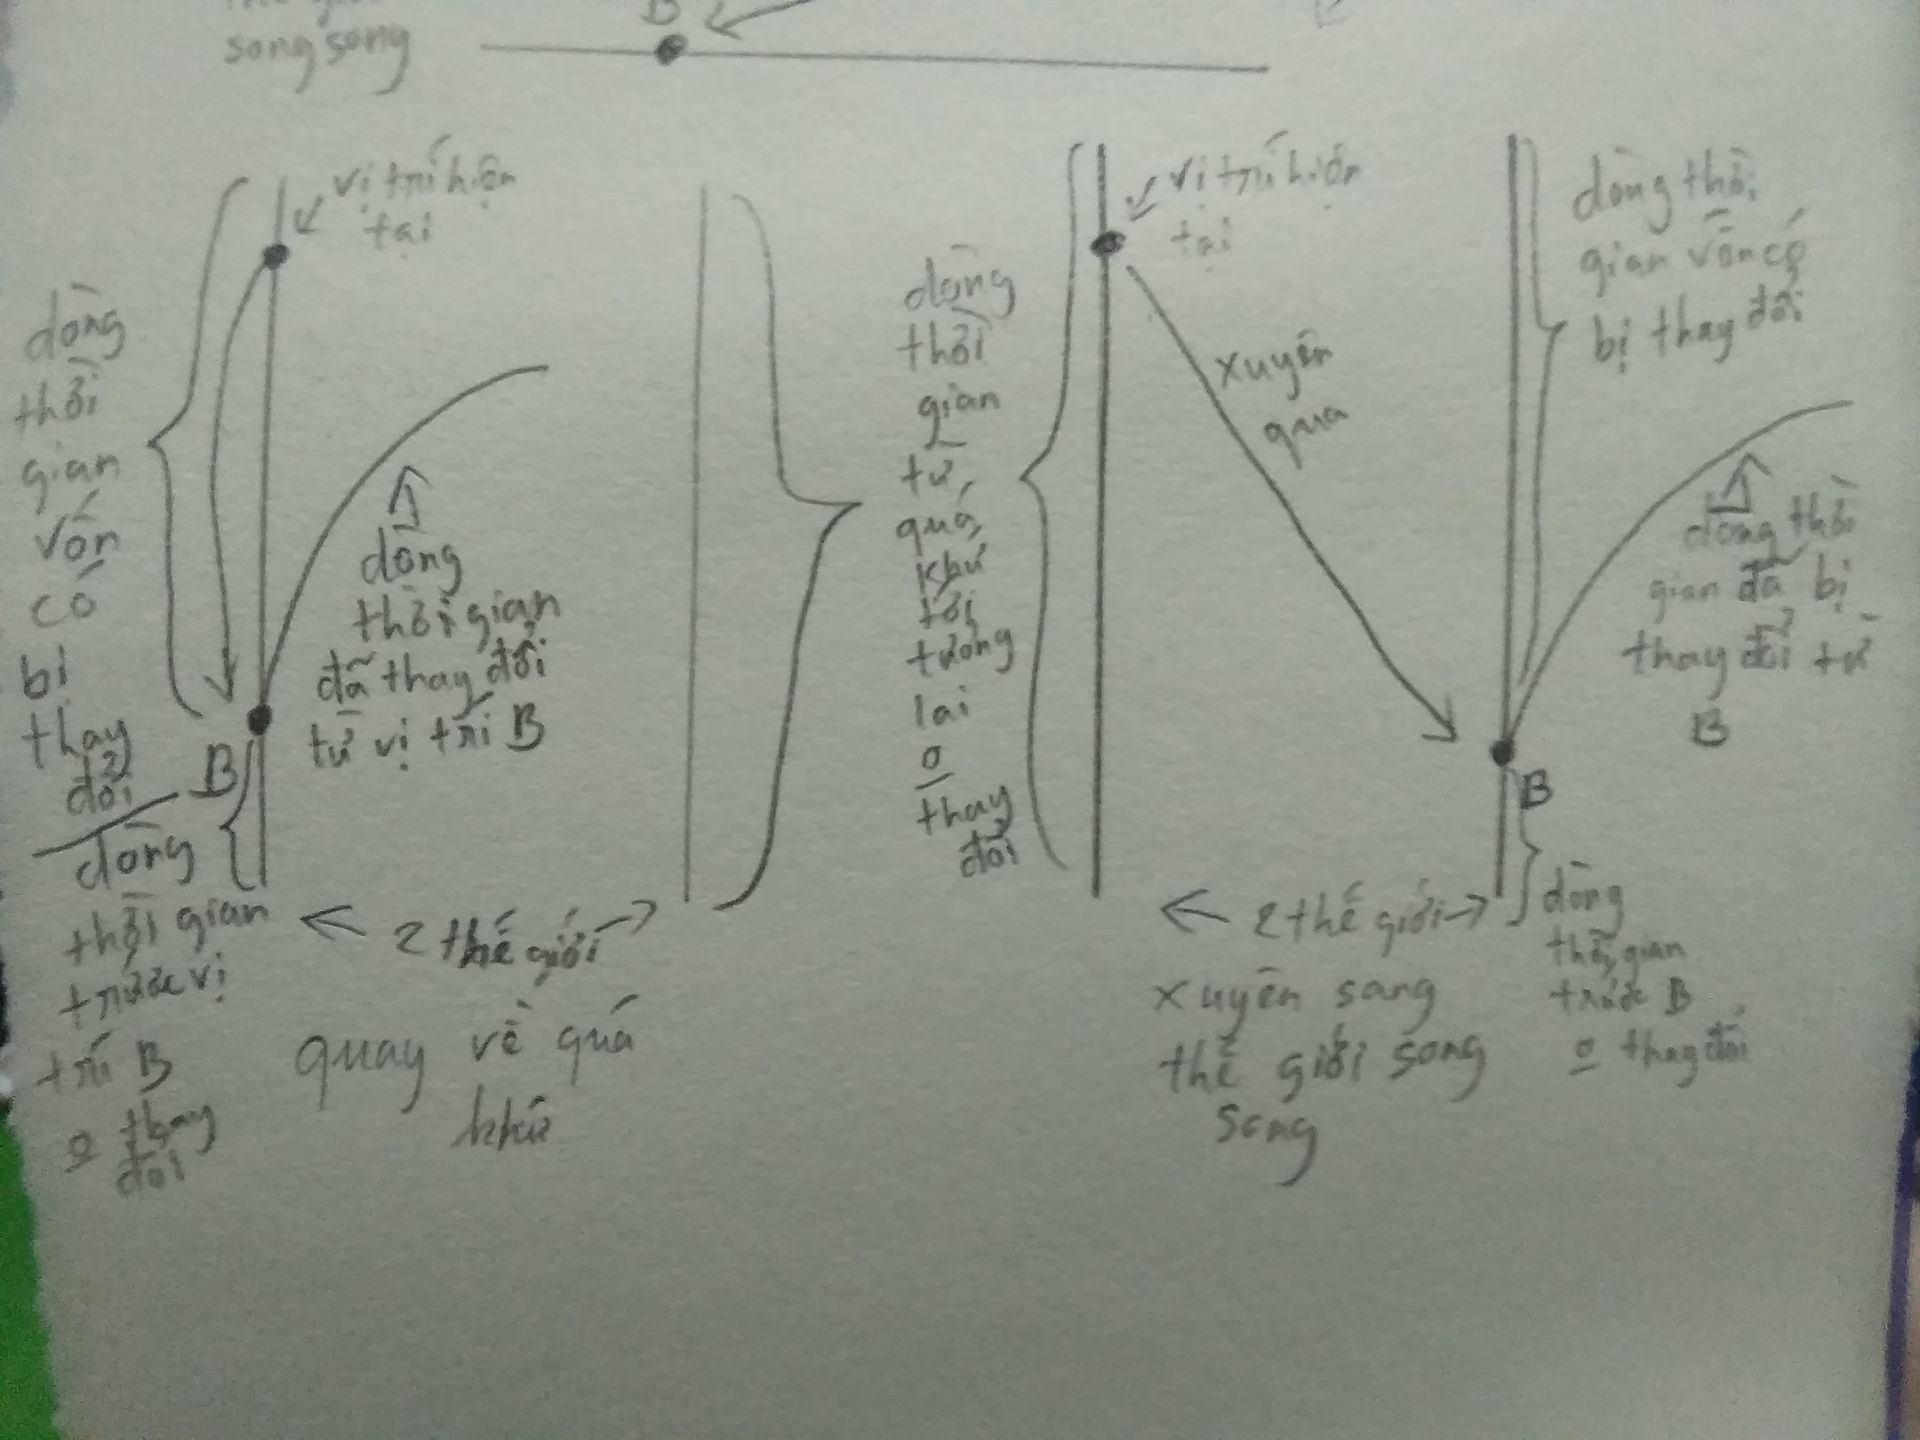 song song
B
vị trí hiện
tại
dòng
thời
gian
vốn
có
bị
thay
đổi
dòng
thời gian
đã thay đổi
từ vị trí B
B
dòng
thời gian
trước vị
trí B
o thay
đổi
2 thế giới
quay về quá
khứ
dòng
thời
gian
từ
quá
khứ
tới
tương
lai
o
thay
đổi
vị trí hiện
tại
xuyên
qua
dòng thời
gian vốn có
bị thay đổi
dòng thời
gian đã bị
thay đổi từ
B
B
2 thế giới
xuyên sang
thế giới song
song
dòng
thời gian
trước B
o thay đổi